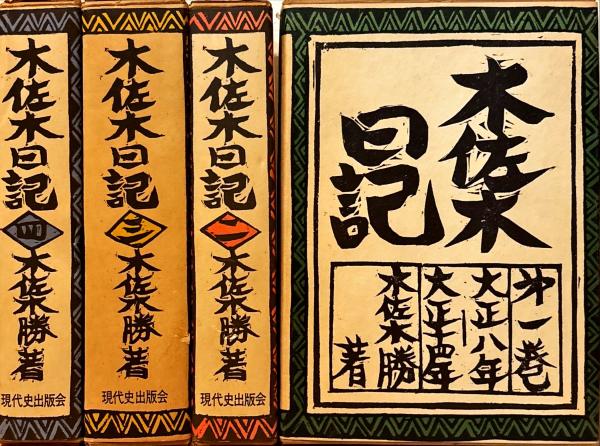 木佐木日記
四
木佐木勝著
現代史出版会
木佐木日記
三
木佐木勝著
現代史出版会
木佐木日記
二
木佐木勝著
現代史出版会
木佐木
日記
第一巻
大正八年
大正十四年
木佐木勝
著